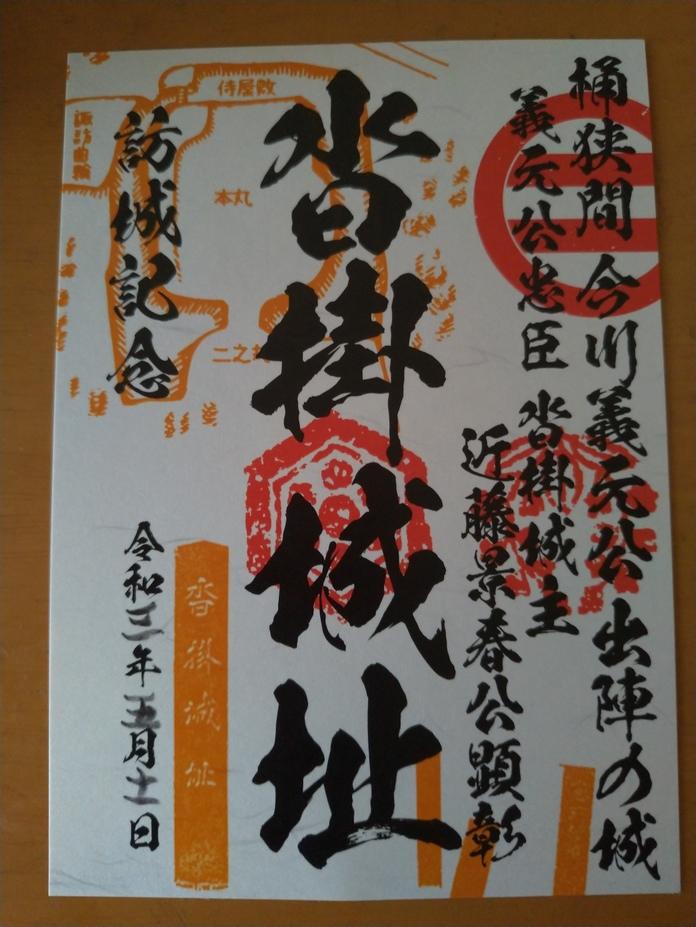 桶狭間今川義元公出陣の城
義元公忠臣 沓掛城主
近藤景春公顕彰
沓掛城址
訪城記念
令和三年五月十一日
侍屋敷
諏訪曲輪
本丸
二之
沓掛城址